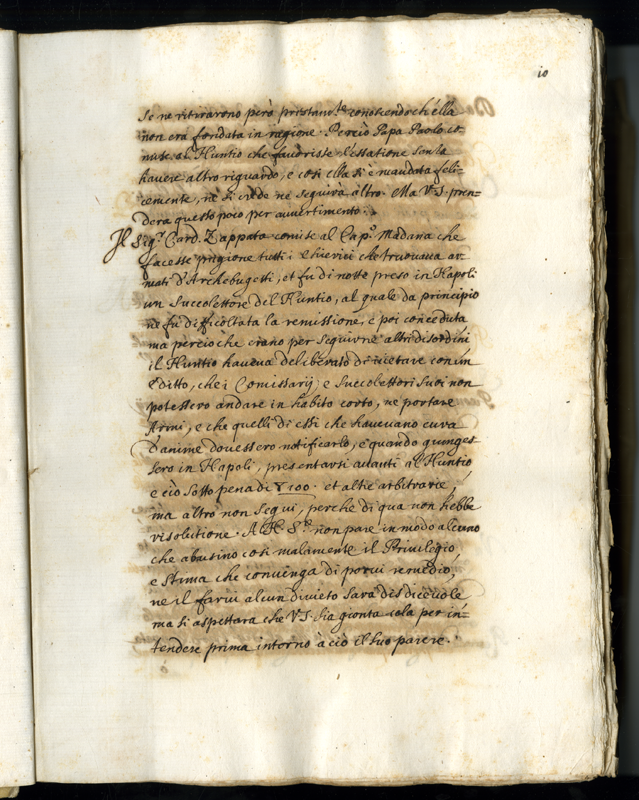 10
se ne ritirarono però prestam.te conoscendo ch'ella
non era fondata in ragione. Perciò Papa Paolo co-
mise al Nuntio che favorisse l'essatione senza
havere altro riguardo, e così ella si è mandata feli-
cemente, ne si crede ne seguirà altro. Ma V.S. pren-
derà questo poco per avvertimento.
Il Sig.r Card. Zappata comise al Cap.o Madana che
facesse prigione tutti i Chierici che trovava ar-
mati d'Archebugetti, et fu di notte preso in Napoli
un Succolettore del Nuntio, al quale da principio
ne fu difficoltata la remissione, e poi conceduta
ma perciò che erano per seguirne altri disordini
il Nuntio haveva deliberato di vietare con un
Editto, che i Comissarij e Succolettori suoi non
potessero andare in habito corto, ne portare
Armi, e che quelli di essi che havevano cura
d'anime dovessero notificarlo, e quando giunges-
sero in Napoli, presentarsi avanti al Nuntio
e ciò sotto pena di 100. et altre arbitrarie,
ma altro non seguì, perche di qua non hebbe
risolutione. A N. S.re non pare in modo alcuno
che abusino così malamente il Privilegio,
e stima che convenga di porvi remedio,
ne il farvi alcun divieto sarà disdicevole
ma si aspettarà che V.S. sia gionta colà per in-
tendere prima intorno à ciò il suo parere.